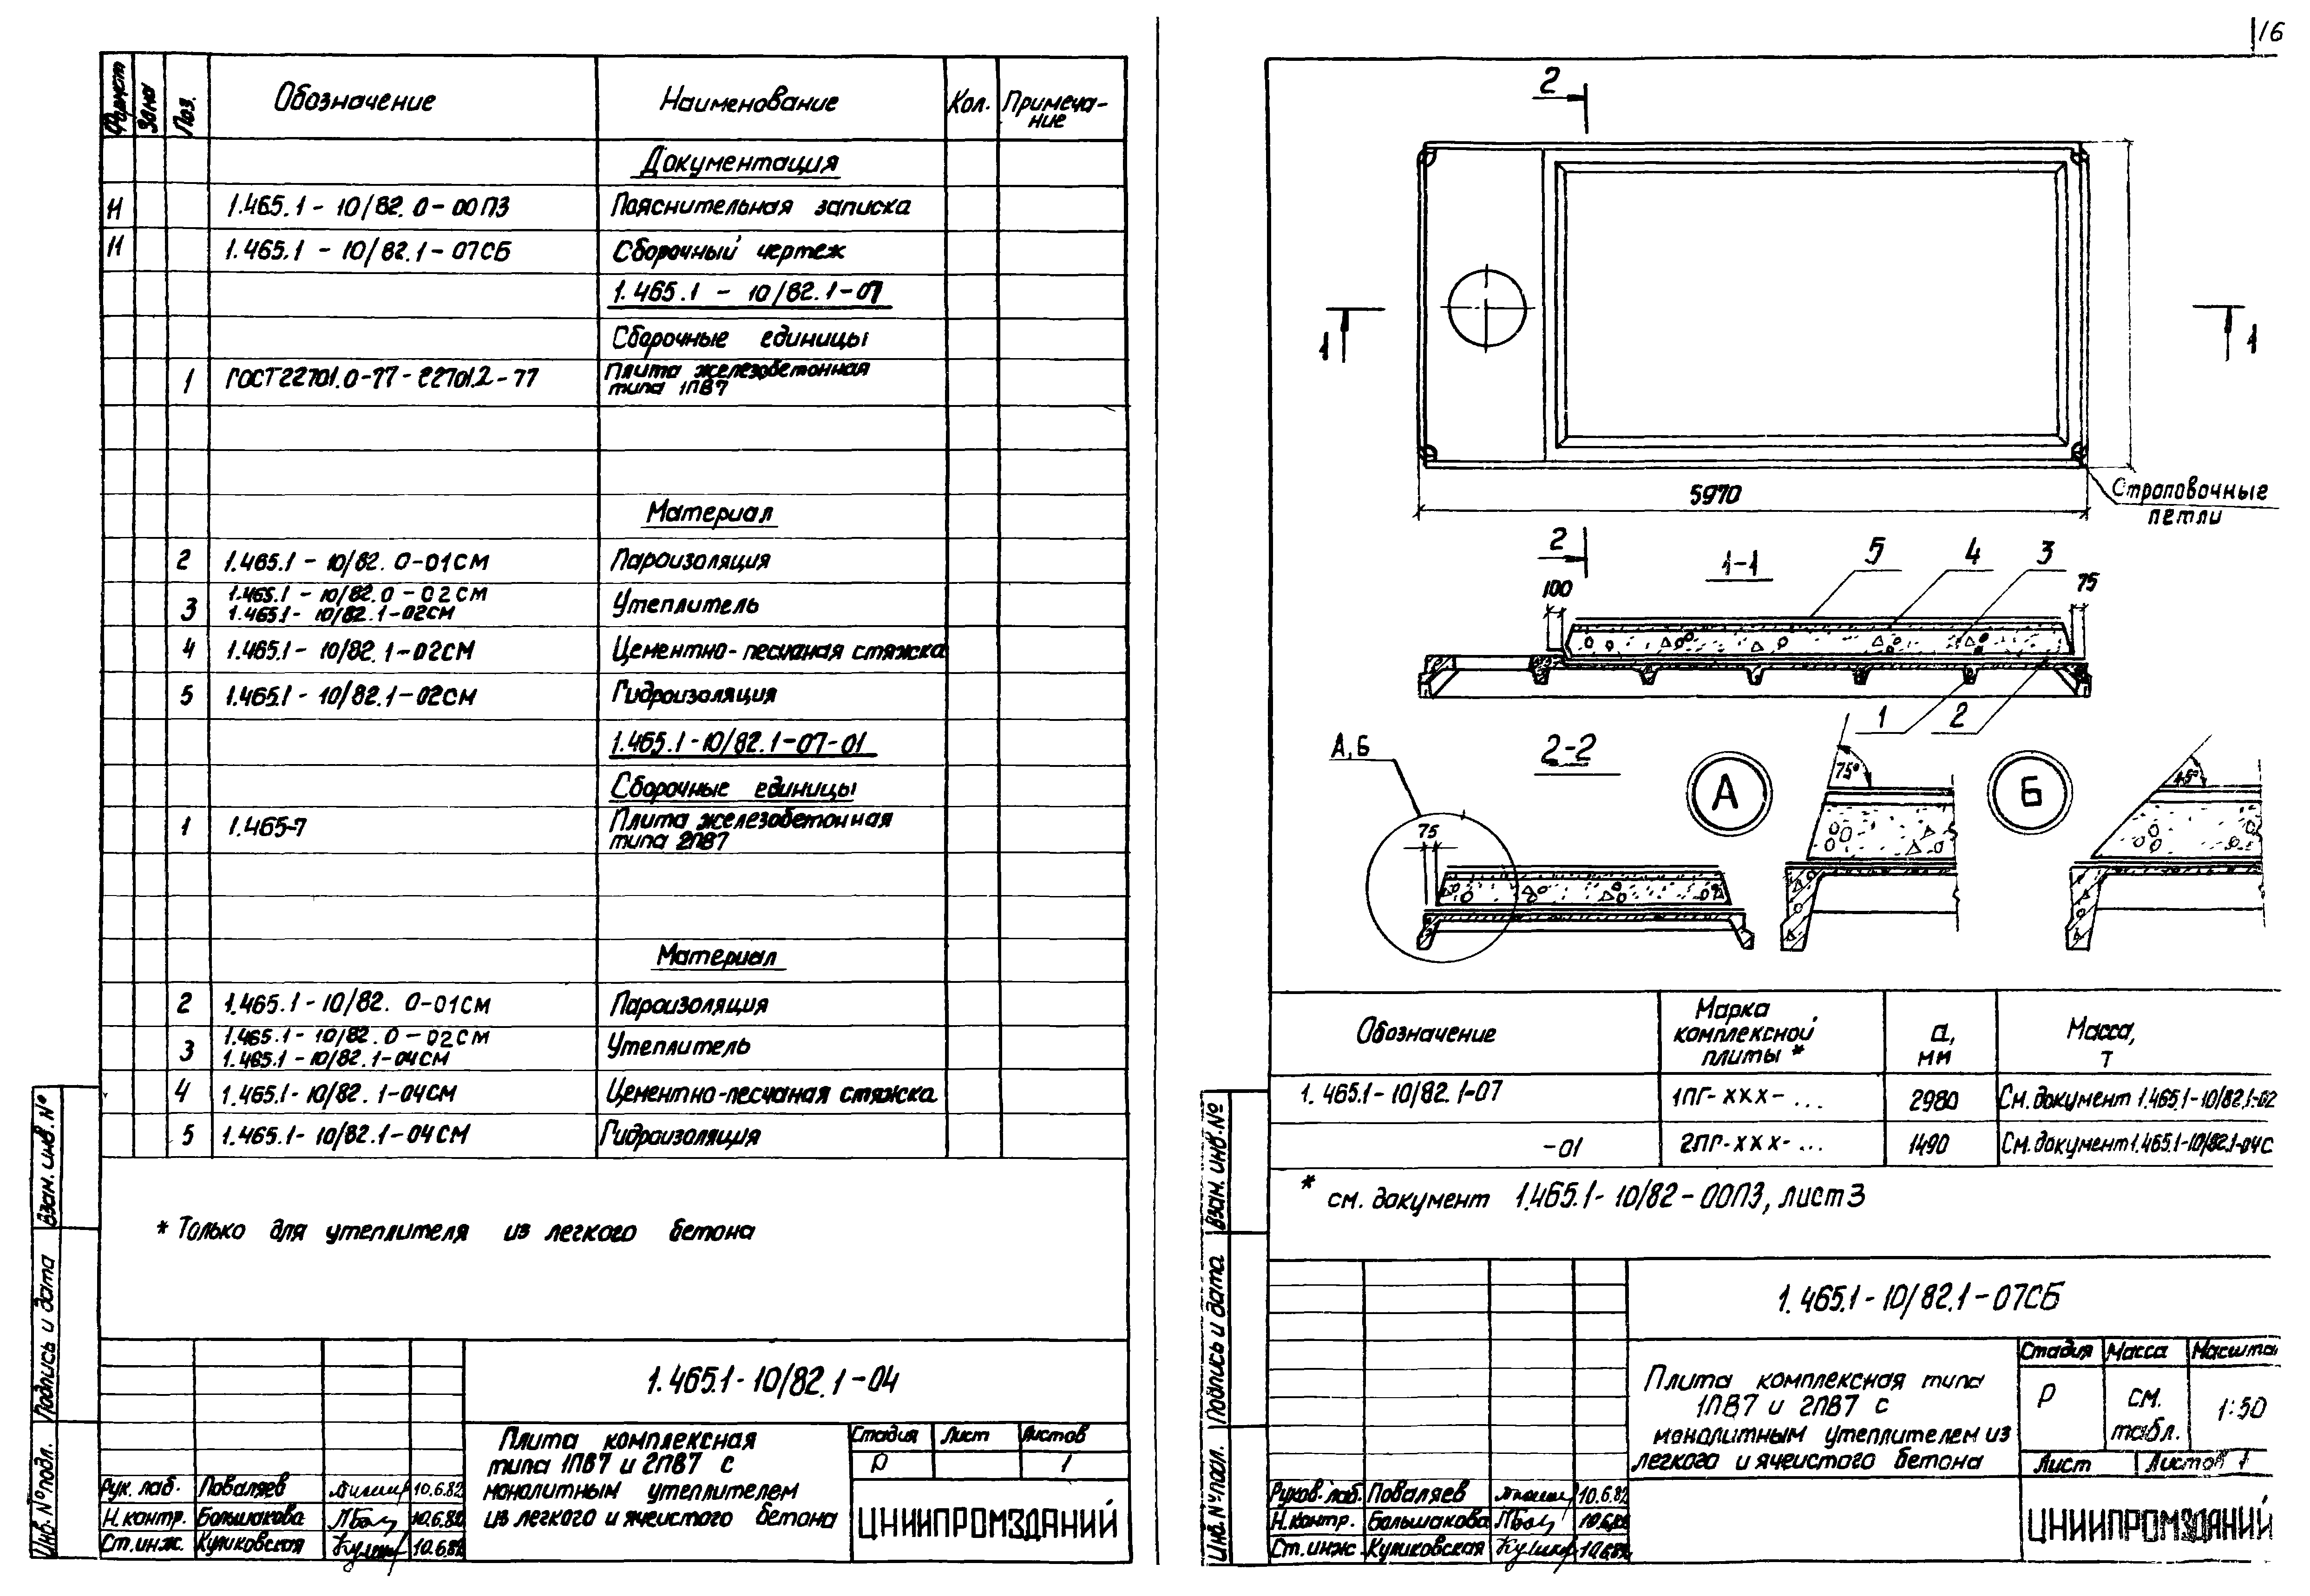 16
Формат Зона Поз. Обозначение Наименование Кол. Примеча-
ние
Документация
И 1.465.1 - 10/82. 0-00ПЗ Пояснительная записка
И 1.465.1 - 10/82.1-07СБ Сборочный чертеж
1.465.1 - 10/82.1-07
Сборочные единицы
1 ГОСТ 22701.0-77-22701.2-77 Плита железобетонная
типа 1ПВ7
Материал
2 1.465.1 - 10/82. 0-01СМ Пароизоляция
3 1.465.1 - 10/82.0 - 02СМ Утеплитель
1.465.1- 10/82.1-02СМ
4 1.465.1- 10/82.1-02СМ Цементно-песчаная стяжка
5 1.465.1- 10/82.1-02СМ Гидроизоляция
1.465.1-10/82.1-07-01
Сборочные единицы
1 1.465-7 Плита железобетонная
типа 2ПВ7
Материал
2 1.465.1-10/82. 0-01СМ Пароизоляция
3 1.465.1- 10/82.0 - 02СМ Утеплитель
1.465.1 - 10/82.1-04СМ
4 1.465.1- 10/82. 1-04СМ Цементно-песчаная стяжка
5 1.465.1- 10/82.1-04СМ Гидроизоляция
* Только для утеплителя из легкого бетона
1.465.1-10/82.1-04
Плита комплексная
типа 1ПВ7 и 2ПВ7 с
монолитным утеплителем
из легкого и ячеистого бетона
Стадия Лист Листов
Р 1
ЦНИИПРОМЗДАНИЙ
Рук. лаб. Поваляев 10.6.82
Н.контр. Большакова 10.6.82
Ст.инж. Куликовская 10.6.82
Инв.№подл. Подпись и дата Взам. инв.№
2
1 1
5970
Строповочные
петли
2
1-1
5 4 3
100 75
1 2
А,Б
2-2
А
75°
Б
45°
75
Обозначение Марка
комплексной
плиты *
а,
мм
Масса,
т
1.465.1-10/82.1-07 1ПГ-ххх-... 2980 См.документ 1.465.1-10/82.1-02
-01 2ПГ-ххх-... 1490 См.документ 1.465.1-10/82.1-04С
* см. документ 1.465.1-10/82-00ПЗ, лист 3
1.465.1-10/82.1-07СБ
Плита комплексная типа
1ПВ7 и 2ПВ7 с
монолитным утеплителем из
легкого и ячеистого бетона
Стадия Масса Масшта
Р см.
табл.
1:50
Лист Листов 1
ЦНИИПРОМЗДАНИЙ
Руков.лаб. Поваляев 10.6.82
Н.контр. Большакова 10.6.82
Ст.инж Куликовская 10.6.82
Инв.№подл. Подпись и дата Взам. инв.№